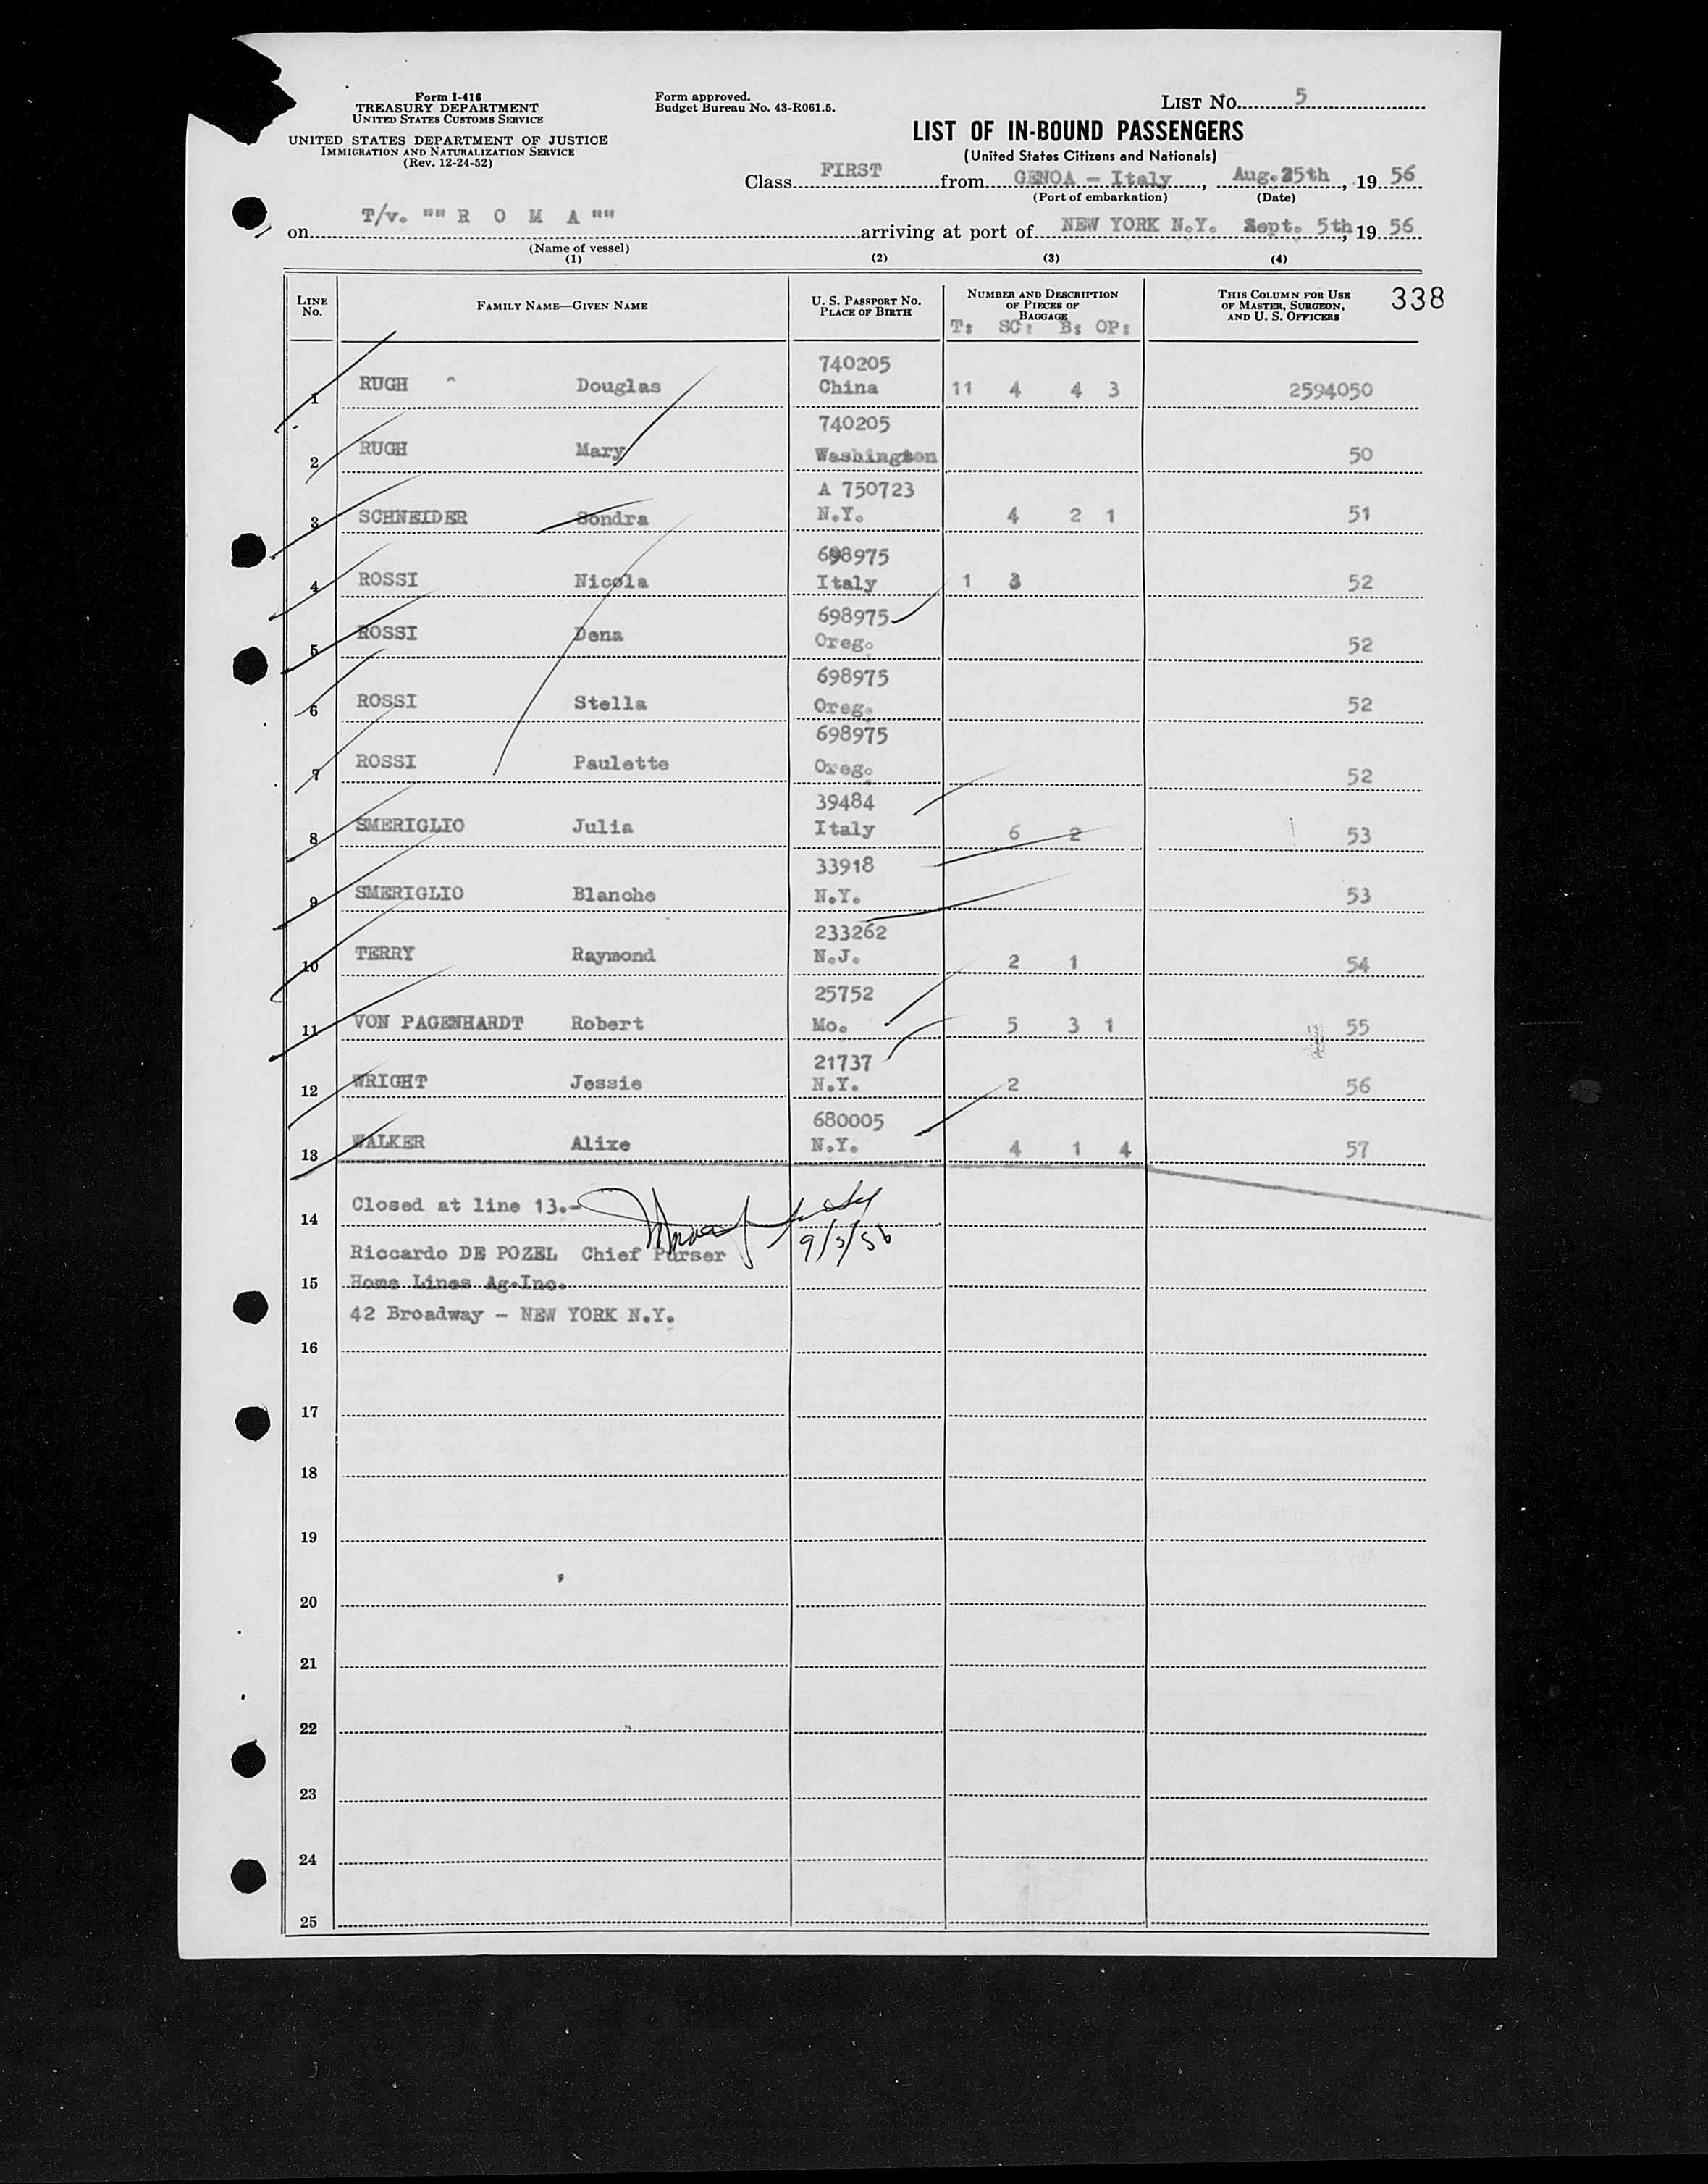 Form I-416
TREASURY DEPARTMENT
UNITED STATES CUSTOMS SERVICE
UNITED STATES DEPARTMENT OF JUSTICE
IMMIGRATION AND NATURALIZATION SERVICE
(Rev. 12-24-52)
Form approved.
Budget Bureau No. 43-R061.5.
LIST NO. 5
LIST OF IN-BOUND PASSENGERS
(United States Citizens and Nationals)
Class FIRST from GENOA - Italy, Aug.25th, 19 56
(Port of embarkation) (Date)
on T/v. "" R O M A "" arriving at port of NEW YORK N.Y. Sept. 5th, 19 56
(Name of vessel)
(1) (2) (3) (4)
LINE No. FAMILY NAME—GIVEN NAME U. S. PASSPORT NO. PLACE OF BIRTH NUMBER AND DESCRIPTION OF PIECES OF BAGGAGE THIS COLUMN FOR USE OF MASTER, SURGEON, AND U. S. OFFICERS 338
T: SC: B: OP:
740205
1 RUGH Douglas China 11 4 4 3 2594050
740205
2 RUGH Mary Washington 50
A 750723
3 SCHNEIDER Sondra N.Y. 4 2 1 51
698975
4 ROSSI Nicola Italy 1 3 52
698975
5 ROSSI Dena Oreg. 52
698975
6 ROSSI Stella Oreg. 52
698975
7 ROSSI Paulette Oreg. 52
39484
8 SMERIGLIO Julia Italy 6 2 53
33918
9 SMERIGLIO Blanche N.Y. 53
233262
10 TERRY Raymond N.J. 2 1 54
25752
11 VON PAGENHARDT Robert Mo. 5 3 1 55
21737
12 WRIGHT Jessie N.Y. 2 56
680005
13 WALKER Alixe N.Y. 4 1 4 57
Closed at line 13.-
14
9/5/56
Riccardo DE POZEL Chief Purser
15 Home Lines Ag.Inc.
42 Broadway - NEW YORK N.Y.
16
17
18
19
20
21
22
23
24
25